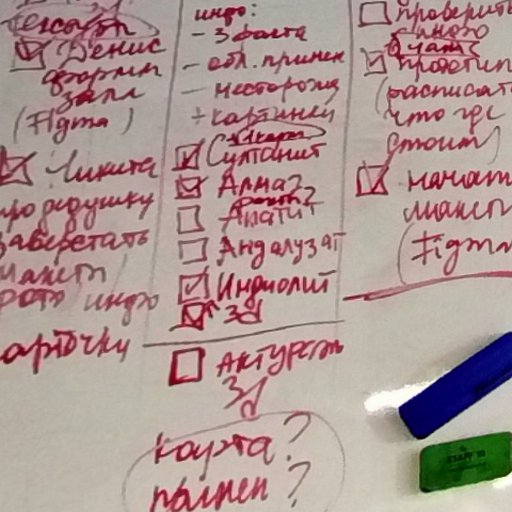 Денис
(Figma)
Никита
про дедушку
заверстать
макет
фото инфо
карточку
инфо:
- 3 факта
- обл. примен
- месторожд
+ картинки
Султанит
Алмаз
Апатит
Андалузит
Индиолит
3d
Актуреть
3d
карта?
полнен?
проверить
в чат
прототип
(расписать
что где
стоит)
начать
макет
(Figma
STAFF